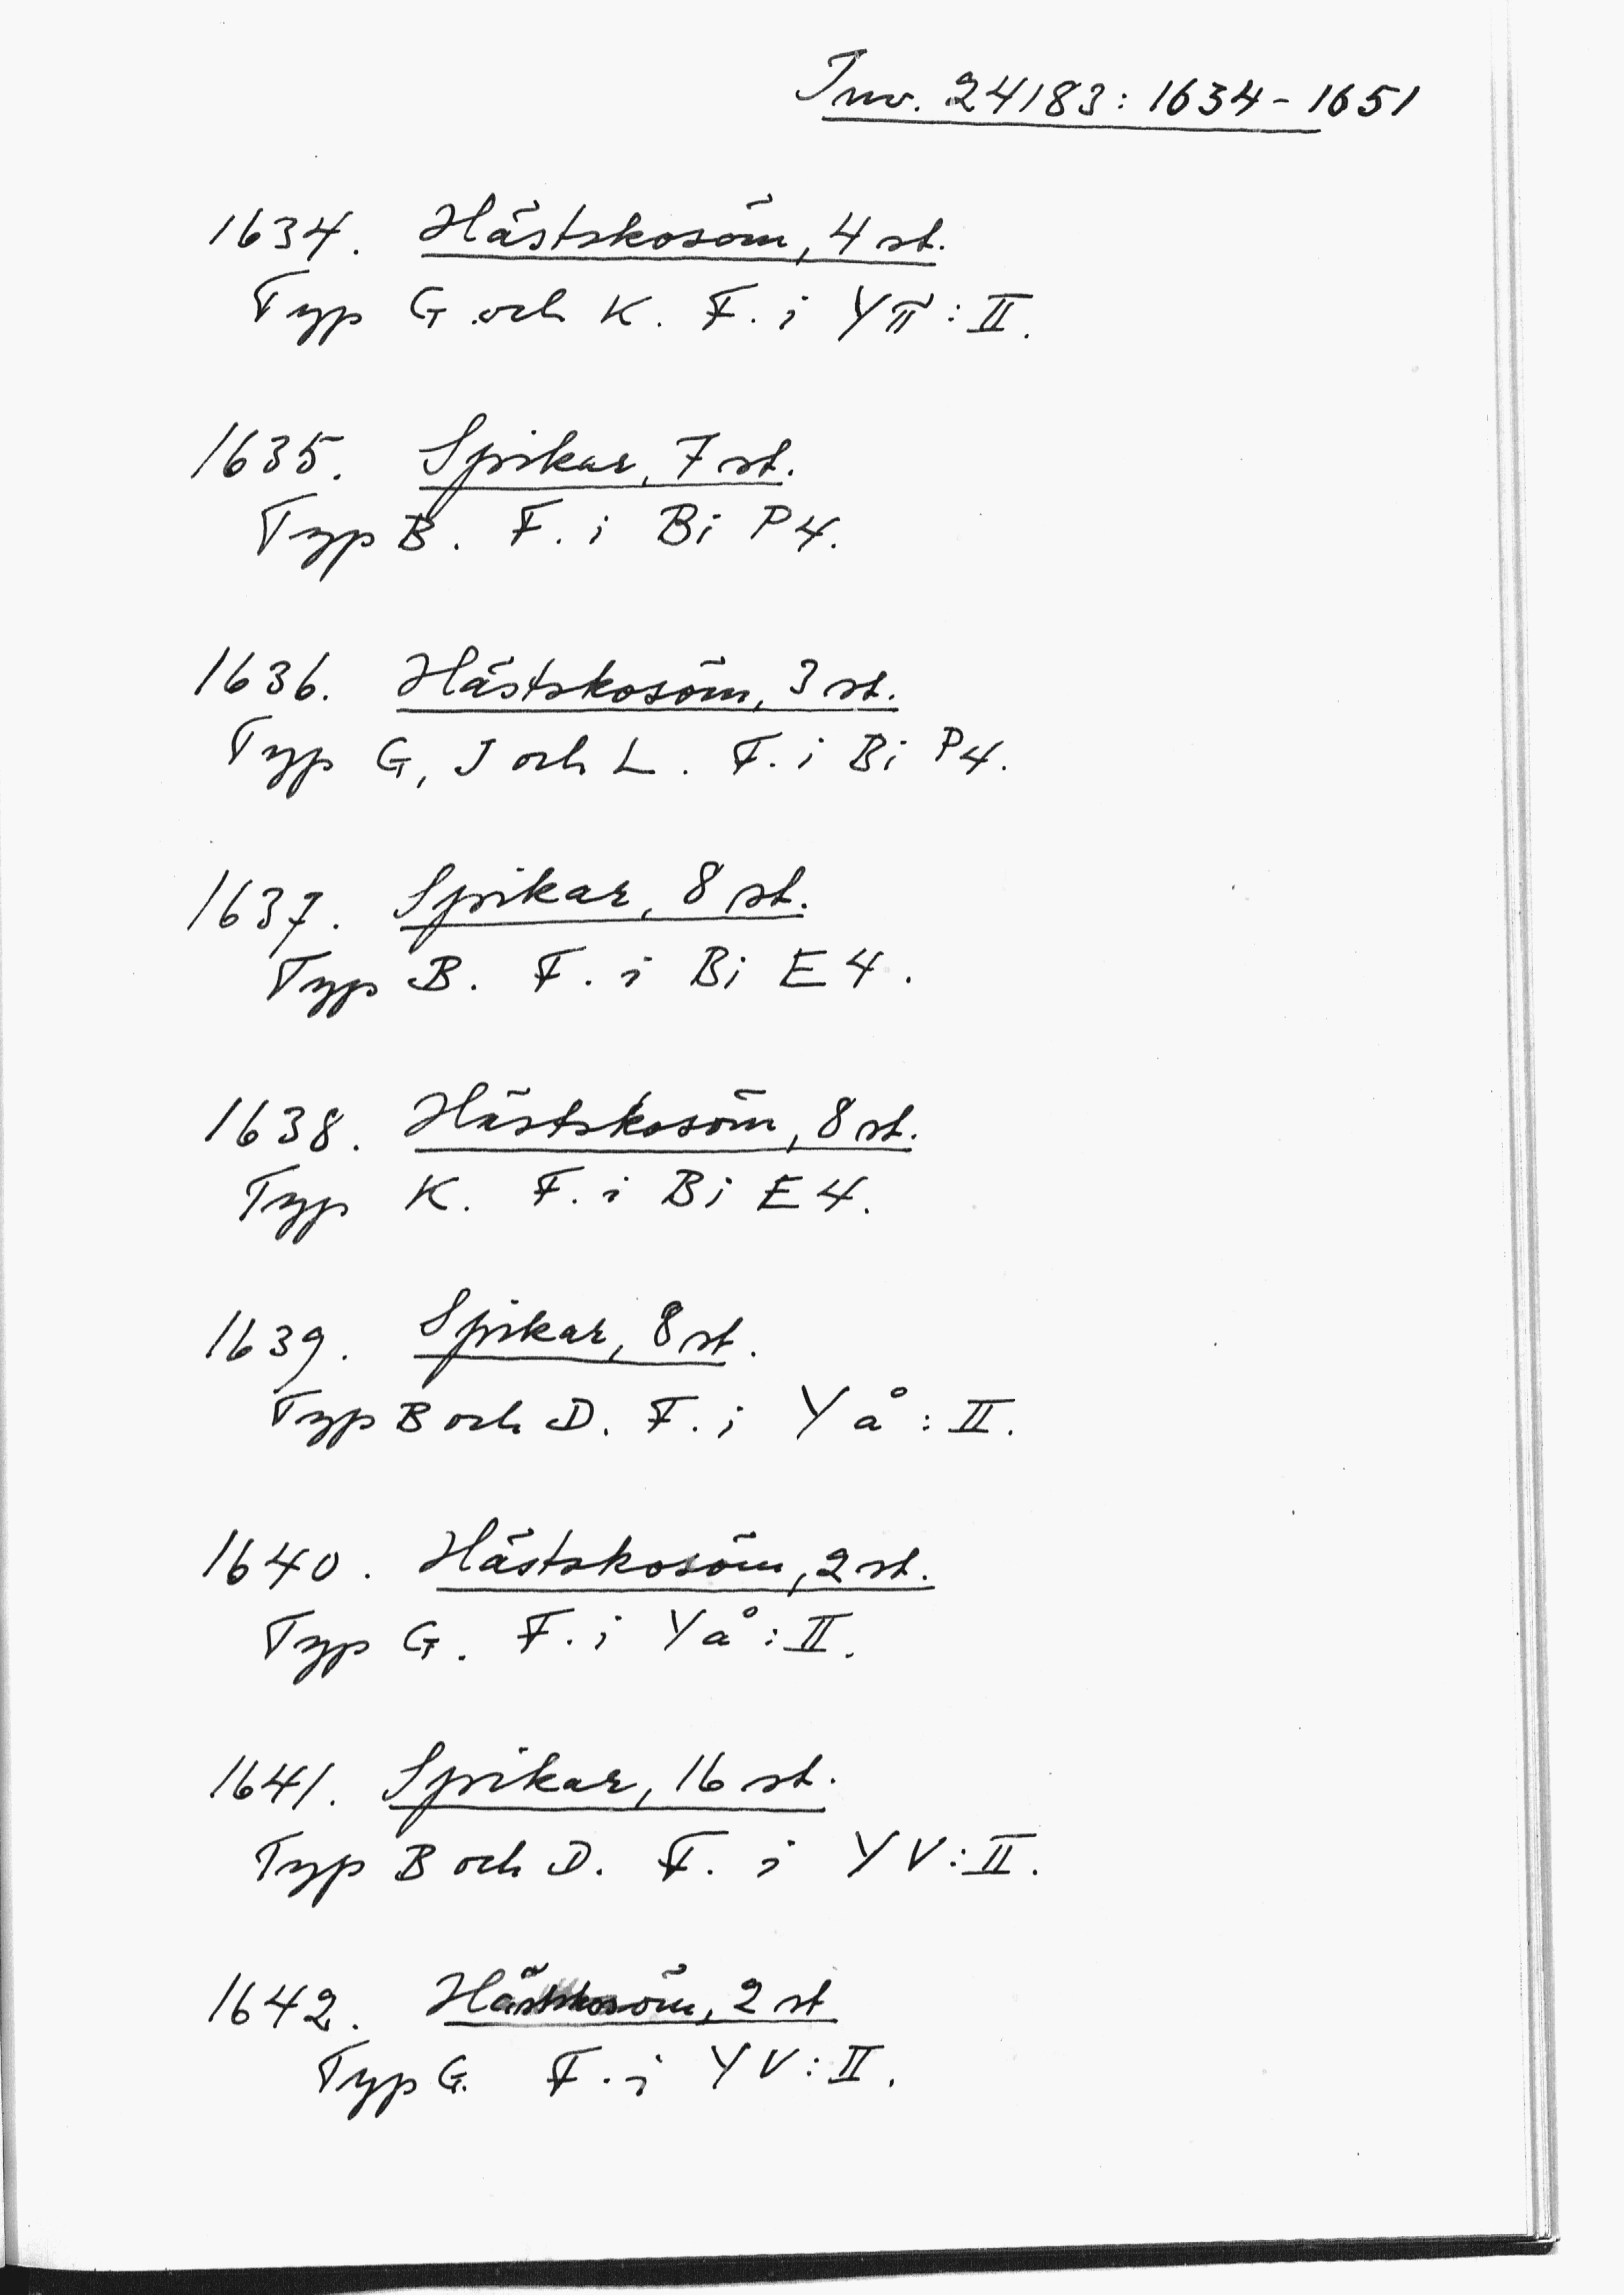 Inv. 24183: 1634-1651
1634. Hästskosöm, 4 st.
Typ G och K. F. i Yπ:II.
1635. Spikar, 7 st.
Typ B. F. i Bi P4.
1636. Hästskosöm, 3 st.
Typ G, J och L. F. i Bi P4.
1637. Spikar, 8 st.
Typ B. F. i Bi E4.
1638. Hästskosöm, 8 st.
Typ K. F. i Bi E4.
1639. Spikar, 8 st.
Typ B och D. F. i Yå:II.
1640. Hästskosöm, 2 st.
Typ G. F. i Yå:II.
1641. Spikar, 16 st.
Typ B och D. F. i YV:II.
1642. Hästskosöm, 2 st
Typ G. F. i YV:II.